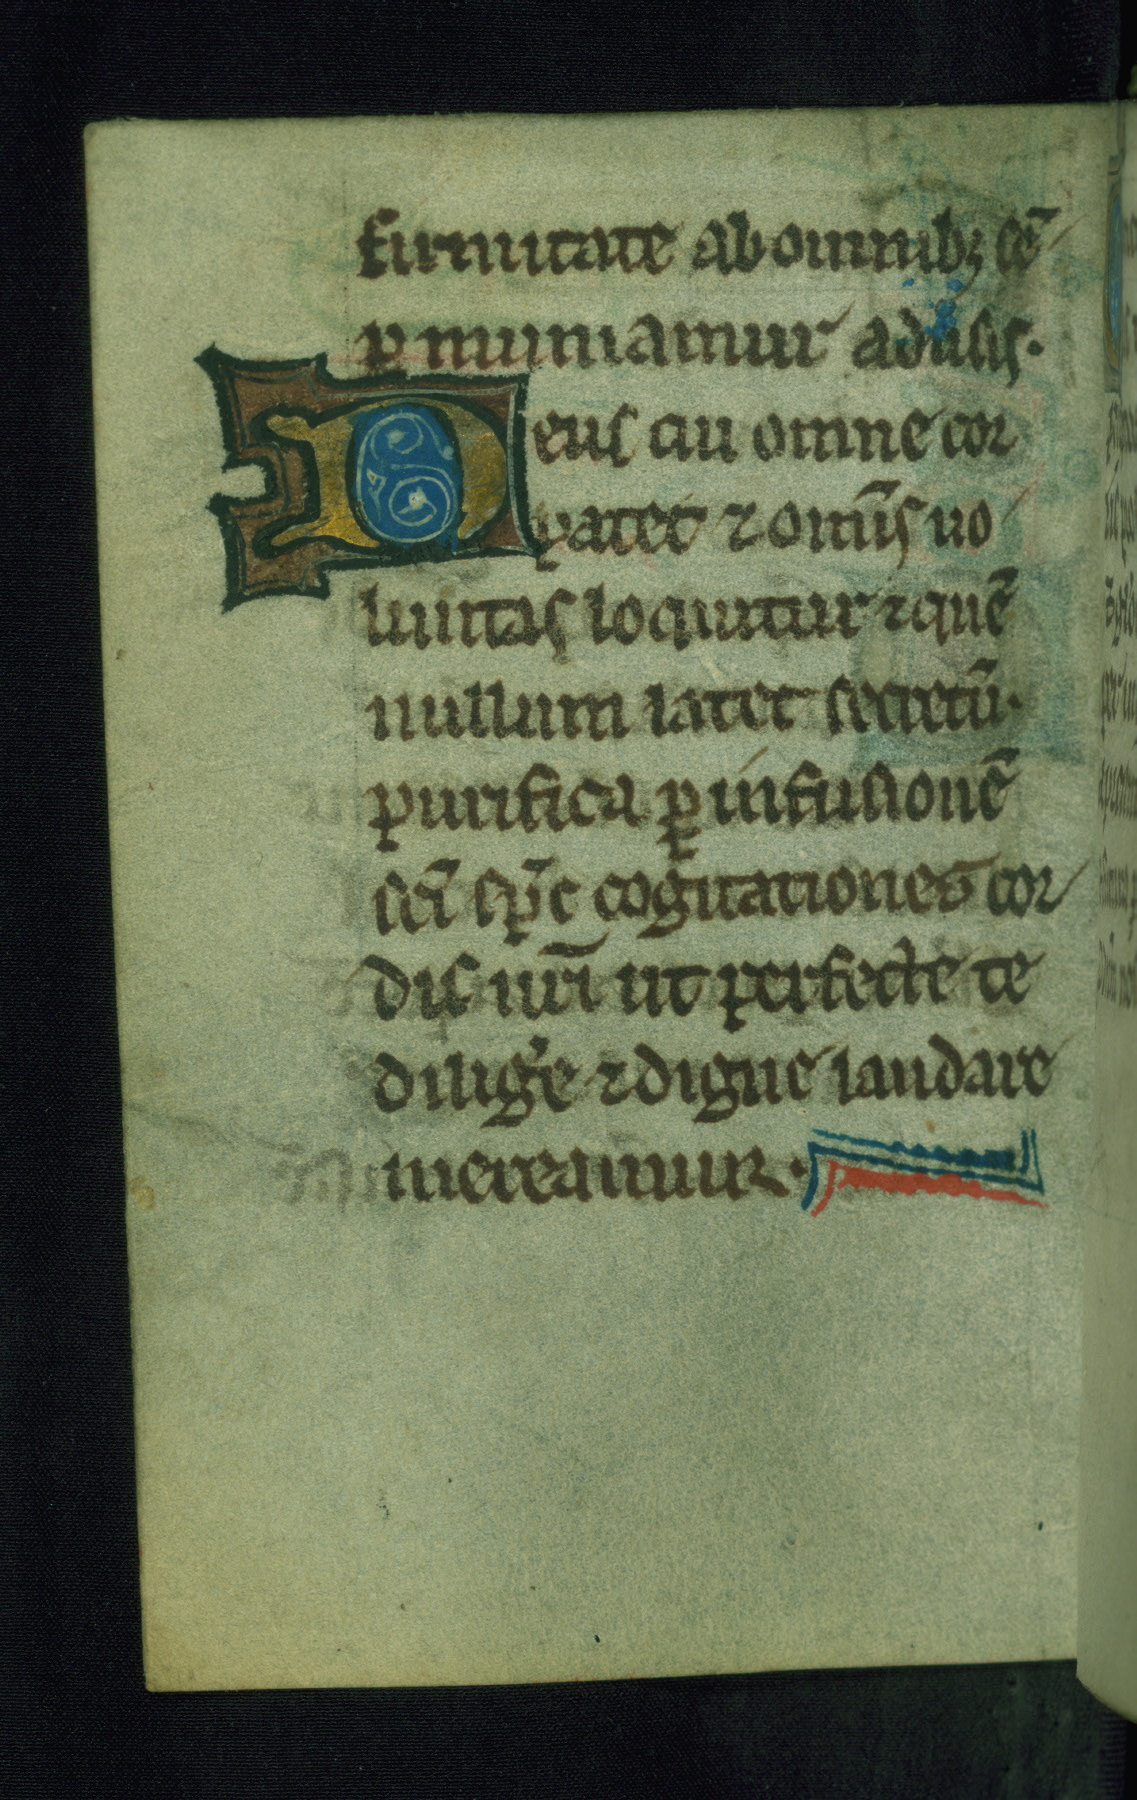 firmitate ab omnibꝫ sē
ꝑ muniamur adūsis·
Deus cui omne cor
patet ⁊ omīs uo
luntas loquitur ⁊ quē
nullum latet secretū·
purifica ꝑ infusionē
sc̄i sp̄c cogitationes cor
dis nr̄i ut perfecte te
diligʼe ⁊ digne laudare
mereamur·